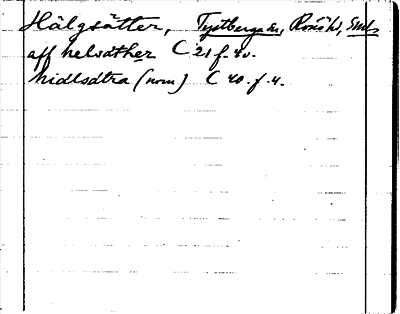 Hälgsätter, Tystberga sn, Rönö hd, Smds
aff helsäther C 21 f. 40.
hidlsätra (norn) C 40. f. 4.